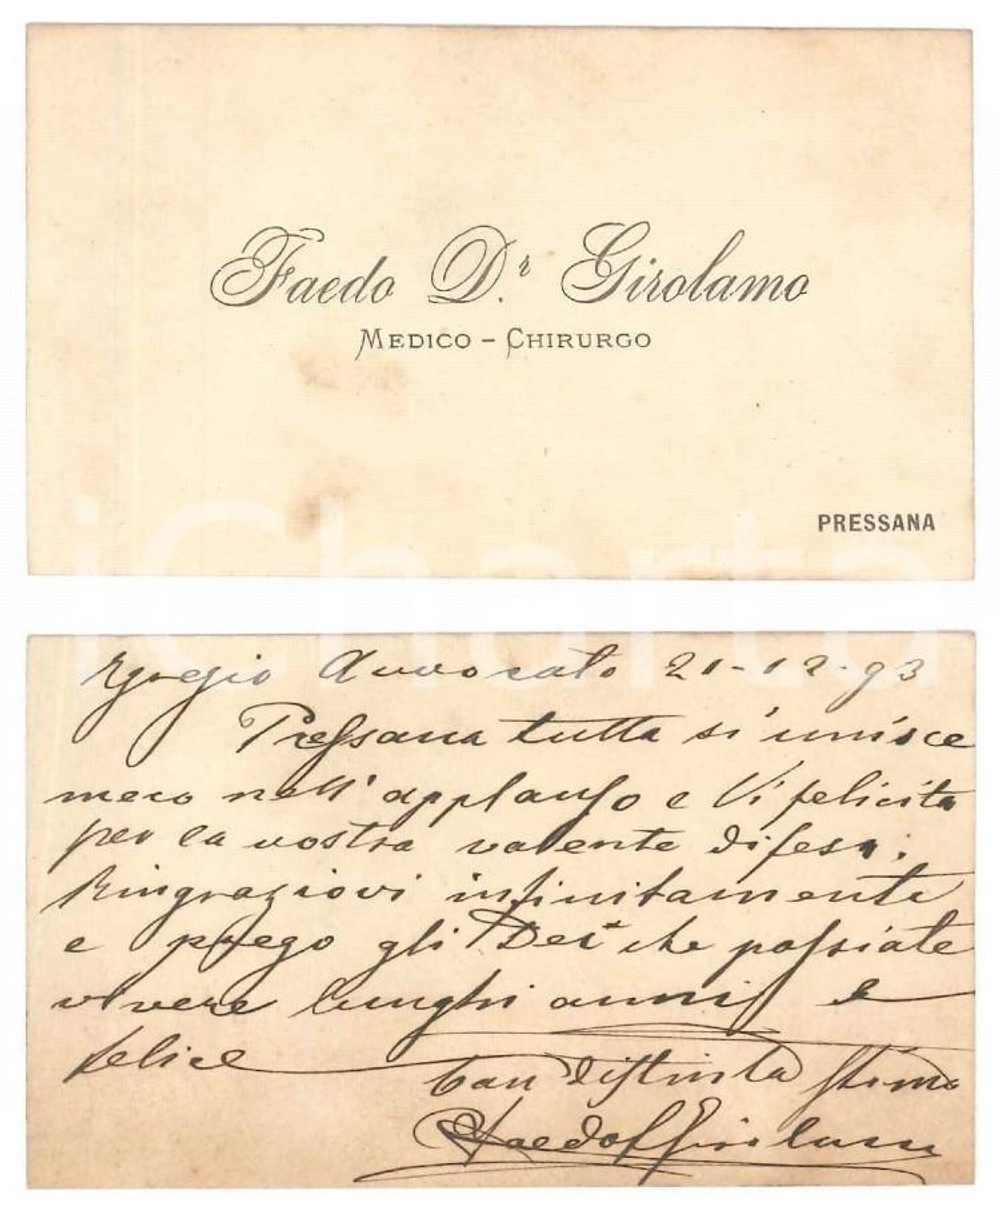 Faedo D.r Girolamo
MEDICO - CHIRURGO
PRESSANA
iCharta
Egregio Avvocato 21-12-93
Pressana tutta si unisce
meco nell'applauso e Vi felicita
per la vostra valente difesa:
Ringraziovi infinitamente
e prego gli Dei che possiate
vivere lunghi anni e
felice
Con distinta stima
Faedo Girolamo